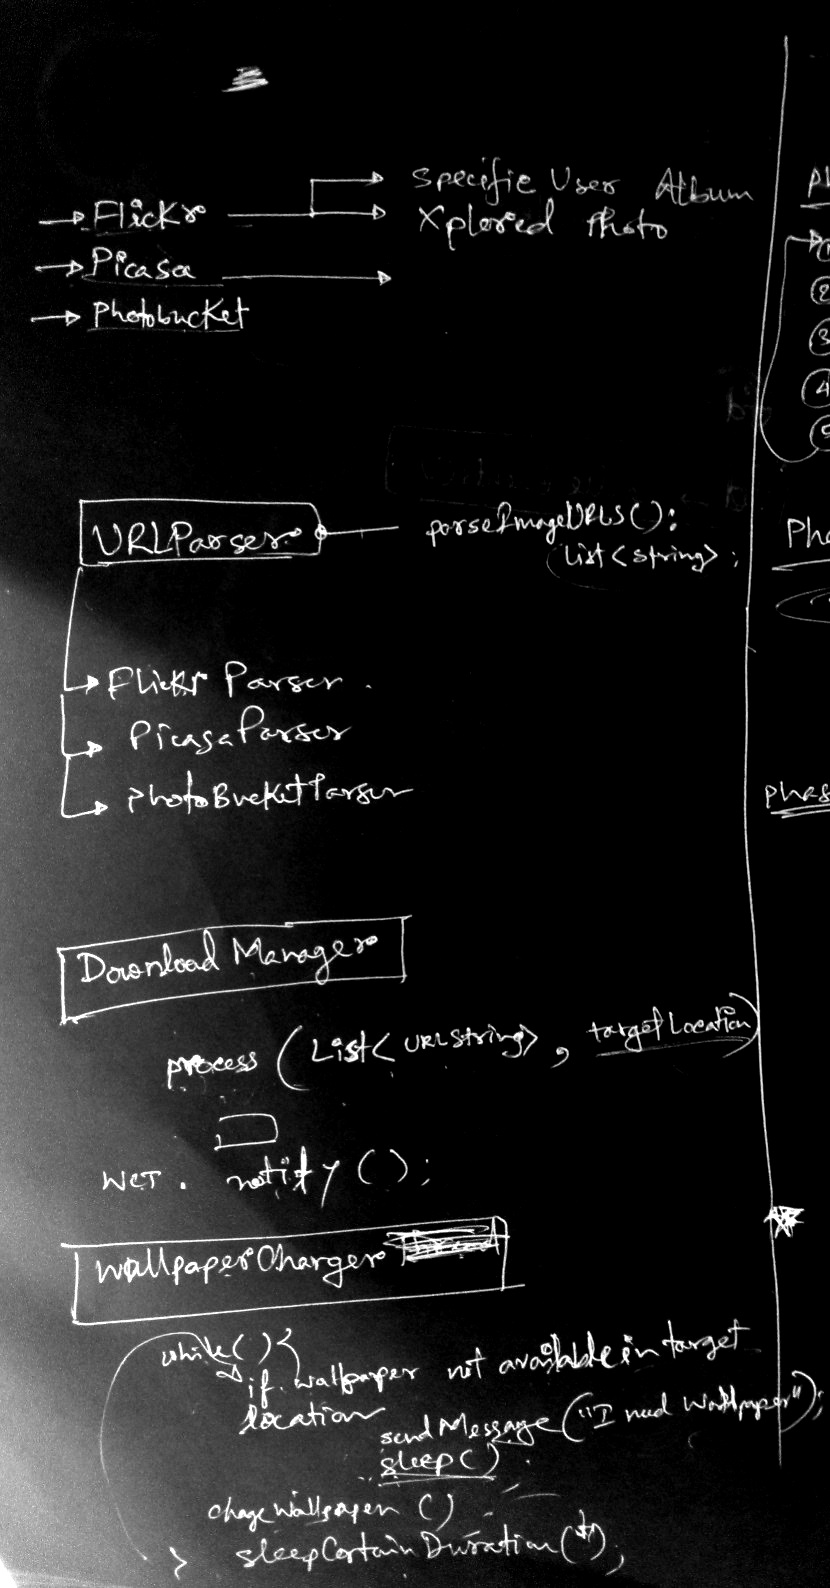 Flickr
Specific User Album
Xplored Photo
Picasa
Photobucket
URLParser
parseImageURLS():
List<string>;
Flickr Parser.
PicasaParser
PhotoBucketParser
Download Manager
process (List<URLString>, targetLocation)
WCT. notify();
WallpaperChanger
while(){
if wallpaper not available in target
location
sendMessage("I need Wallpaper");
sleep()
chageWallpaper()
} sleepCertainDuration(t);
①
②
③
④
⑤